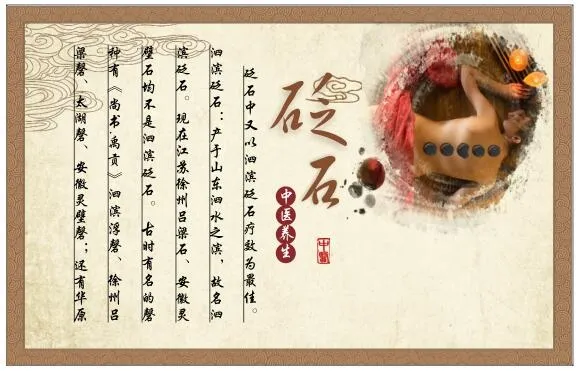 砭石
中医养生
中医
砭石中又以泗滨砭石疗效为最佳。
泗滨砭石：产于山东泗水之滨，故名泗
滨砭石。现在江苏徐州吕梁石、安徽灵
壁石均不是泗滨砭石。古时有名的磬
种有《尚书·禹贡》泗滨浮磬、徐州吕
梁磬、太湖磬、安徽灵璧磬；还有华原